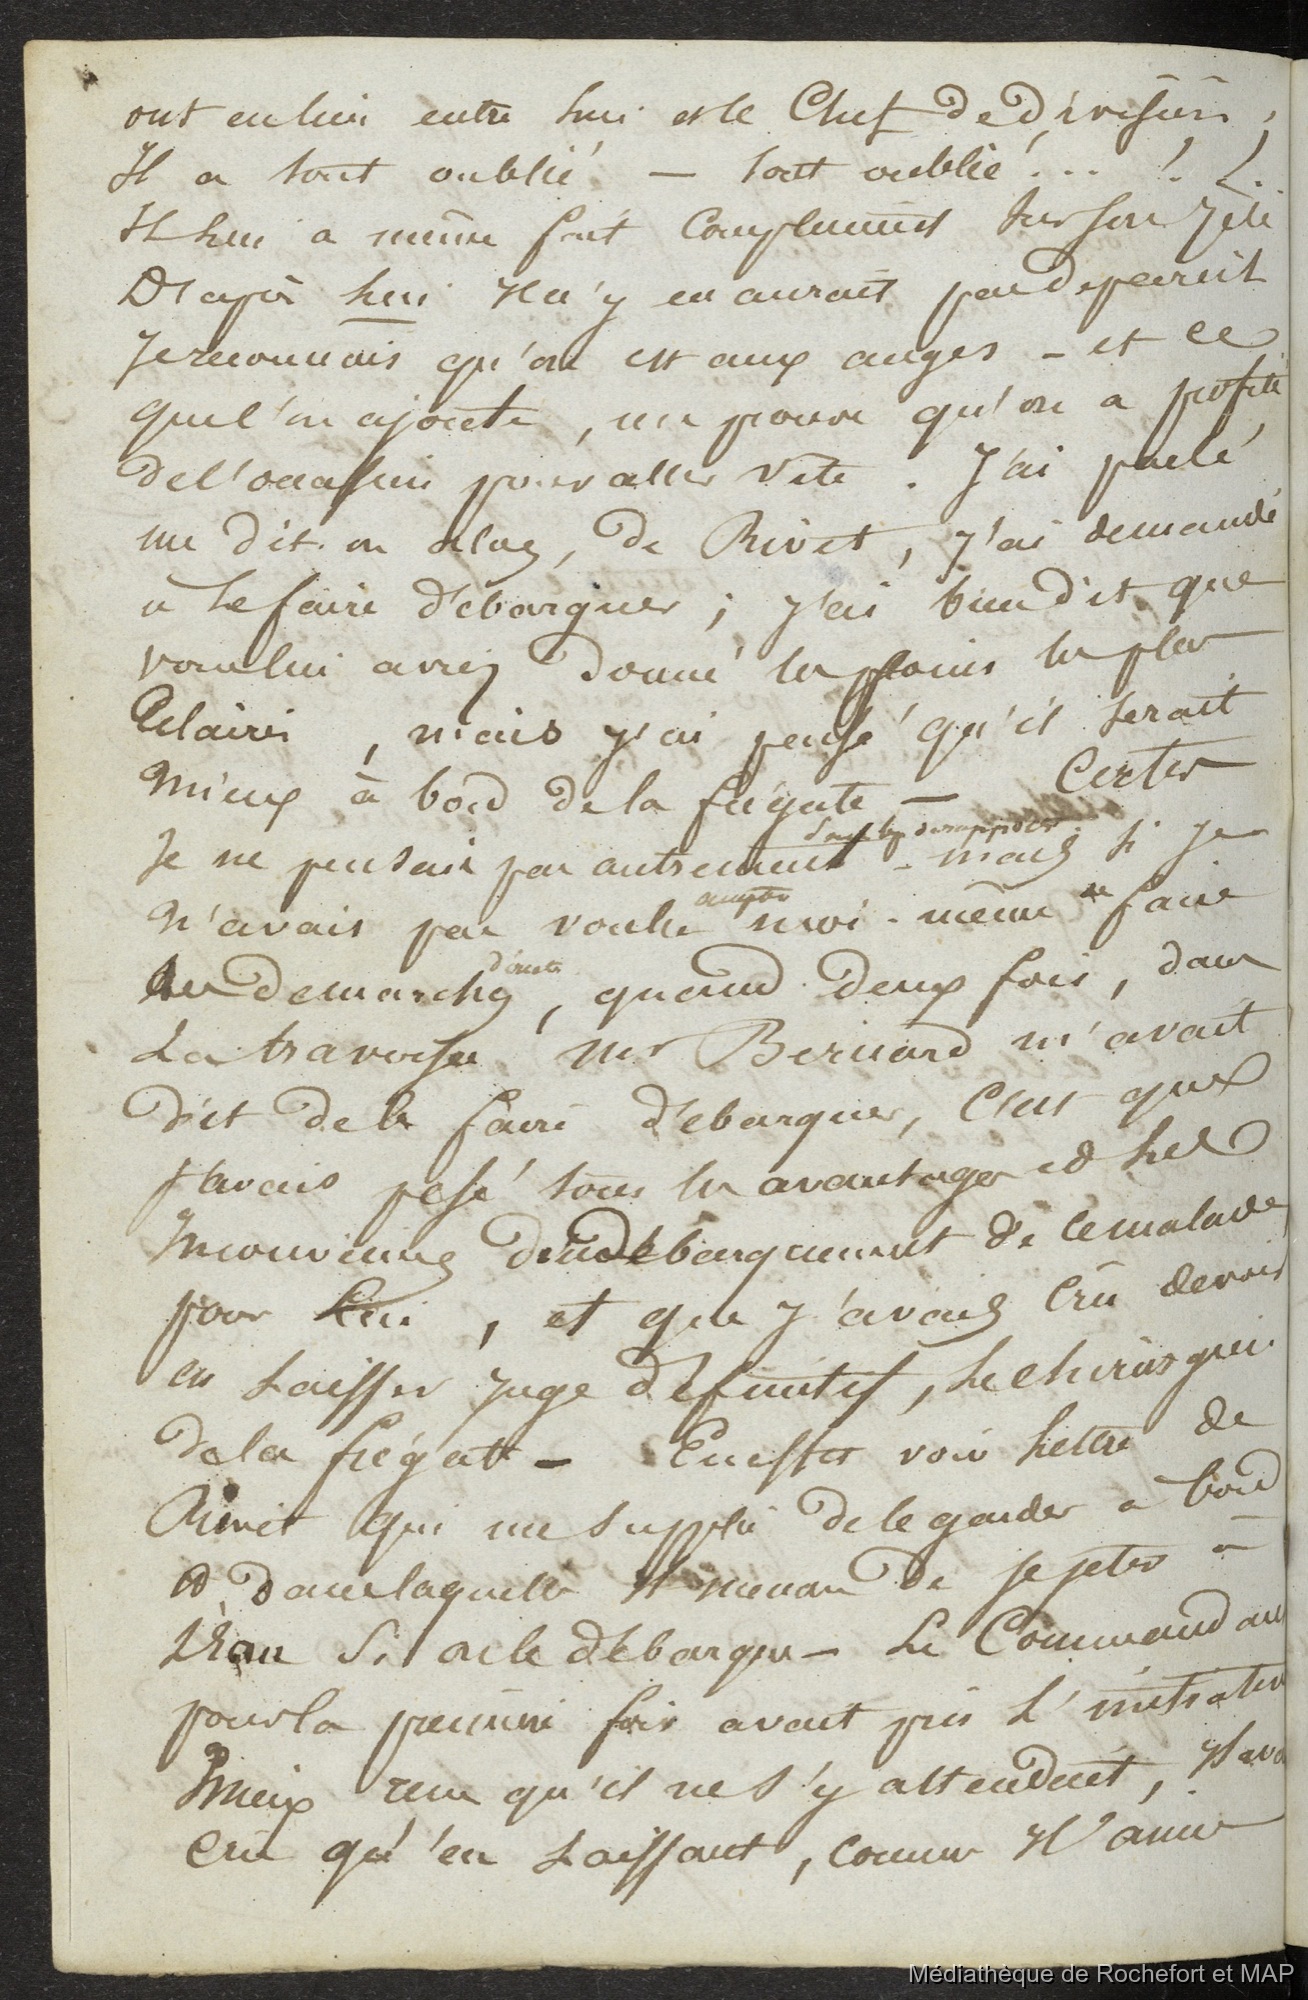 ont eu lieu entre lui et le Chef de Division,
Il a tout oublié — tout oublié ... ! !
Il lui a même fait compliment sur son zèle
D'après lui il n'y en aurait pas de pareil
Je reconnais qu'on est aux anges - et ce
que l'on ajoute, me prouve qu'on a profité
de l'occasion pour aller vite. J'ai parlé
me dit-on alors, de Rivet, j'ai demandé
à le faire débarquer ; j'ai bien dit que
vous lui aviez donné les soins les plus
éclairés, mais j'ai pensé qu'il serait
mieux à bord de la frégate — Certes
Je ne pensais pas autrement - mais si je
n'avais pas voulu moi-même faire
démarches, quand deux fois, dans
directe
La traversée Mr Bernard m'avait
dit de le faire débarquer, c'est que
j'avais pesé tous les avantages et les
Inconviens d'un débarquement de ce malade
pour lui, et que j'avais crû devoir
en laisser juge définitif, le chirurgien
de la frégate - En effet voir lettre de
Rivet qui me supplie de le garder à bord
et dans laquelle il menace de se jeter à
l'eau si on le débarque - Le Commandant
pour la première fois avait pris l'initiative
Mieux reçu qu'il ne s'y attendait, il avait
crû qu'en laissant, comme il arrive
Médiathèque de Rochefort et MAP